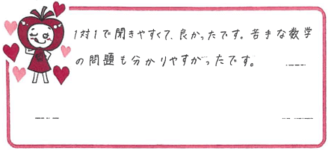 1対1で聞きやすくて、良かったです。苦手な数学
の問題も分かりやすかったです。